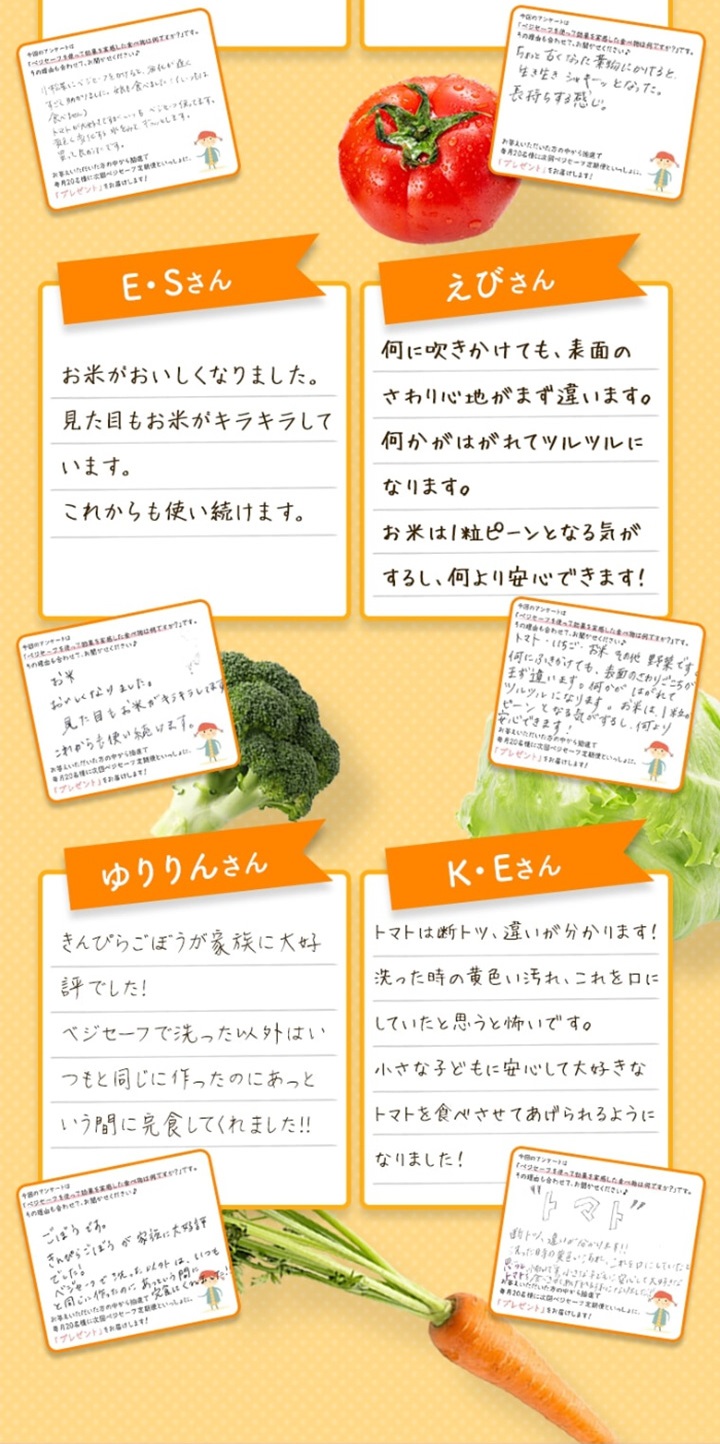 今回のアンケートは
「ベジセーフを使って効果を実感した食べ物は何ですか?」です。
その理由も合わせて、お聞かせください♪
お答えいただいた方の中から抽選で
毎月20名様に次回ベジセーフ定期便といっしょに、
「プレゼント」をお届けします!
今回のアンケートは
「ベジセーフを使って効果を実感した食べ物は何ですか?」です。
その理由も合わせて、お聞かせください♪
ちょっと古くなった葉物にかけると、
生き生き シャキーッ となった。
長持ちする感じ。
お答えいただいた方の中から抽選で
毎月20名様に次回ベジセーフ定期便といっしょに、
「プレゼント」をお届けします!
E・Sさん
お米がおいしくなりました。
見た目もお米がキラキラして
います。
これからも使い続けます。
えびさん
何に吹きかけても、表面の
さわり心地がまず違います。
何かがはがれてツルツルに
なります。
お米は1粒ピーンとなる気が
するし、何より安心できます!
今回のアンケートは
「ベジセーフを使って効果を実感した食べ物は何ですか?」です。
その理由も合わせて、お聞かせください♪
お米
おいしくなりました。
見た目もお米がキラキラしてます
これからも使い続けます。
お答えいただいた方の中から抽選で
毎月20名様に次回ベジセーフ定期便といっしょに、
「プレゼント」をお届けします!
今回のアンケートは
「ベジセーフを使って効果を実感した食べ物は何ですか?」です。
その理由も合わせて、お聞かせください♪
トマト・いちご・お米 その他 野菜です。
何にふきかけても、表面のさわりごこちが
まず違います。何かが はがれて
ツルツルになります。お米は、1粒が
ピーンとなる気がするし、何より
安心できます!
お答えいただいた方の中から抽選で
毎月20名様に次回ベジセーフ定期便といっしょに、
「プレゼント」をお届けします!
ゆりりんさん
きんぴらごぼうが家族に大好
評でした!
ベジセーフで洗った以外はい
つもと同じに作ったのにあっと
いう間に完食してくれました!!
K・Eさん
トマトは断トツ、違いが分かります!
洗った時の黄色い汚れ、これを口に
していたと思うと怖いです。
小さな子どもに安心して大好きな
トマトを食べさせてあげられるように
なりました!
今回のアンケートは
「ベジセーフを使って効果を実感した食べ物は何ですか?」です。
その理由も合わせて、お聞かせください♪
ごぼうです。
きんぴらごぼう が 家族に大好評
でした!
ベジセーフで洗った以外は、いつも
と同じに作ったのに あっという間に
完食してくれました!
お答えいただいた方の中から抽選で
毎月20名様に次回ベジセーフ定期便といっしょに、
「プレゼント」をお届けします!
今回のアンケートは
「ベジセーフを使って効果を実感した食べ物は何ですか?」です。
その理由も合わせて、お聞かせください♪
"トマト"
断トツ、違いが分かります!!
お答えいただいた方の中から抽選で
毎月20名様に次回ベジセーフ定期便といっしょに、
「プレゼント」をお届けします!